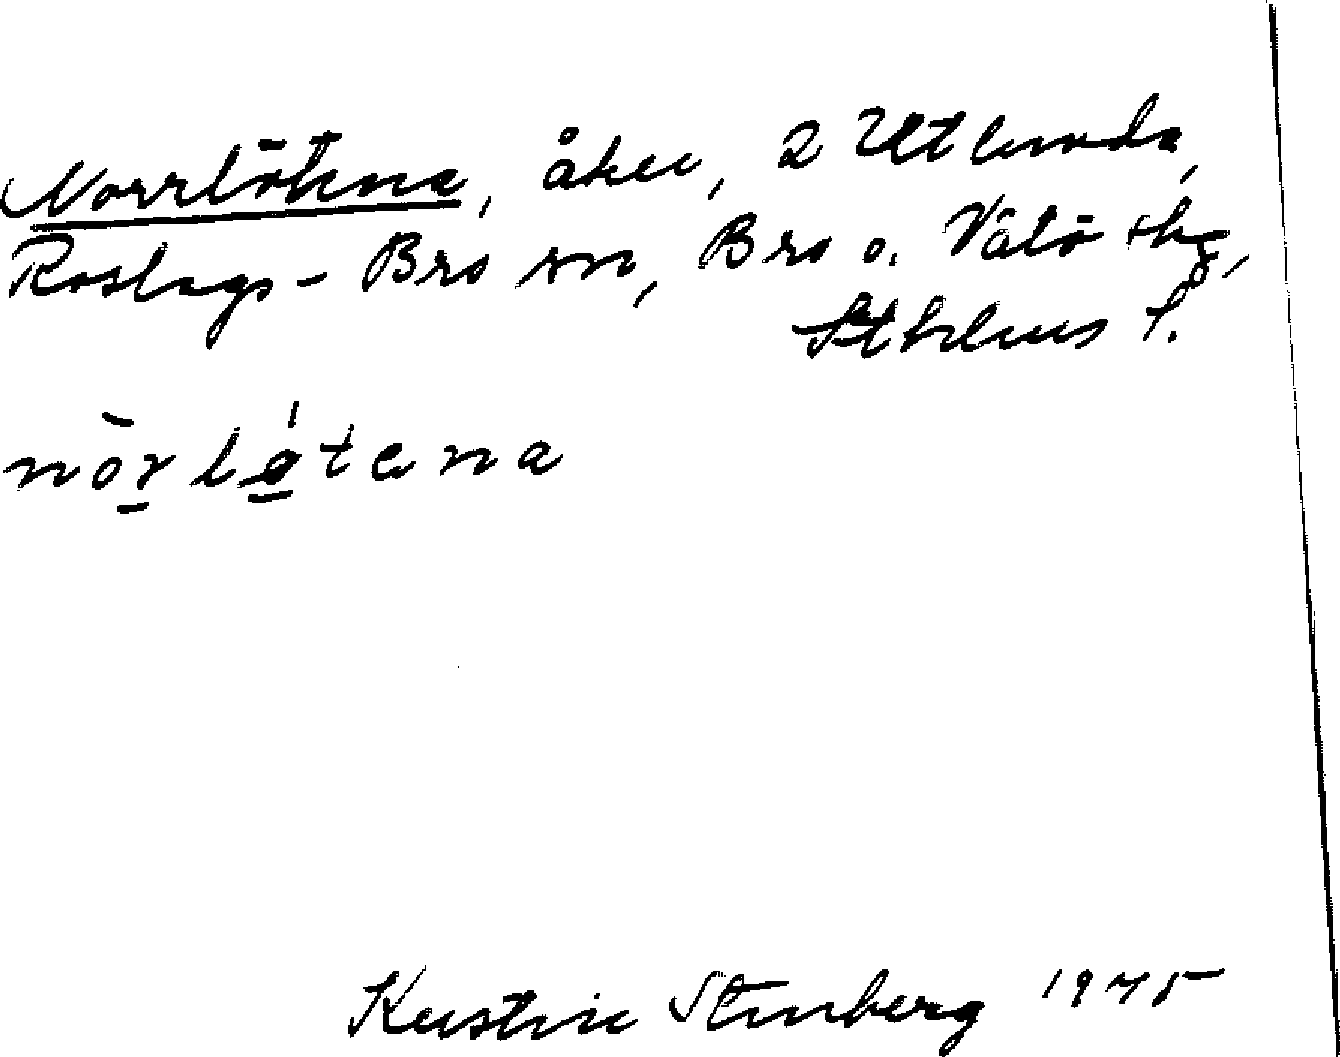 Norrlötena, åker, 2 Utlunda,
Roslags-Bro sn, Bro o. Vätö skg,
Sthlms l.
nòr létena
Kerstin Stenberg 1945